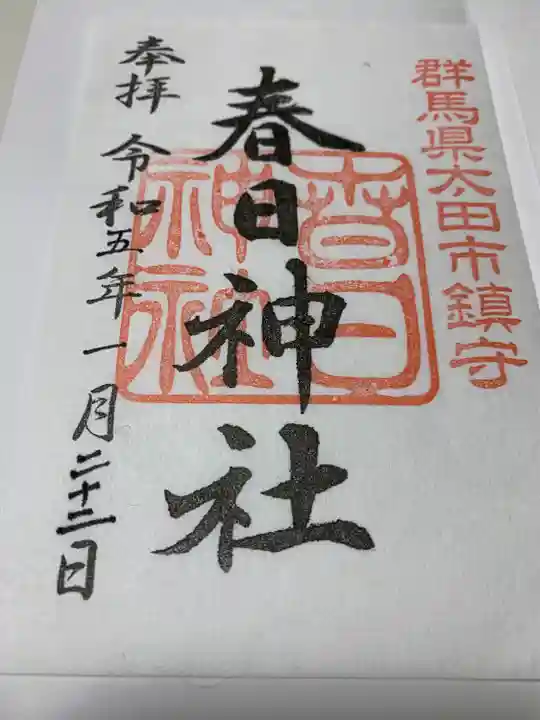 群馬県太田市鎮守
春日神社
春日
神社
奉拝 令和五年一月二十二日